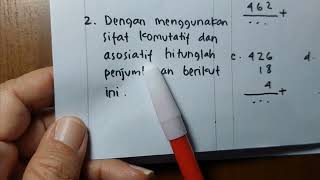 2. Dengan menggunakan
sifat komutatif dan
asosiatif hitunglah
penjumlahan berikut
ini.
462 +
...
c. 426
18
4 +
...
d.